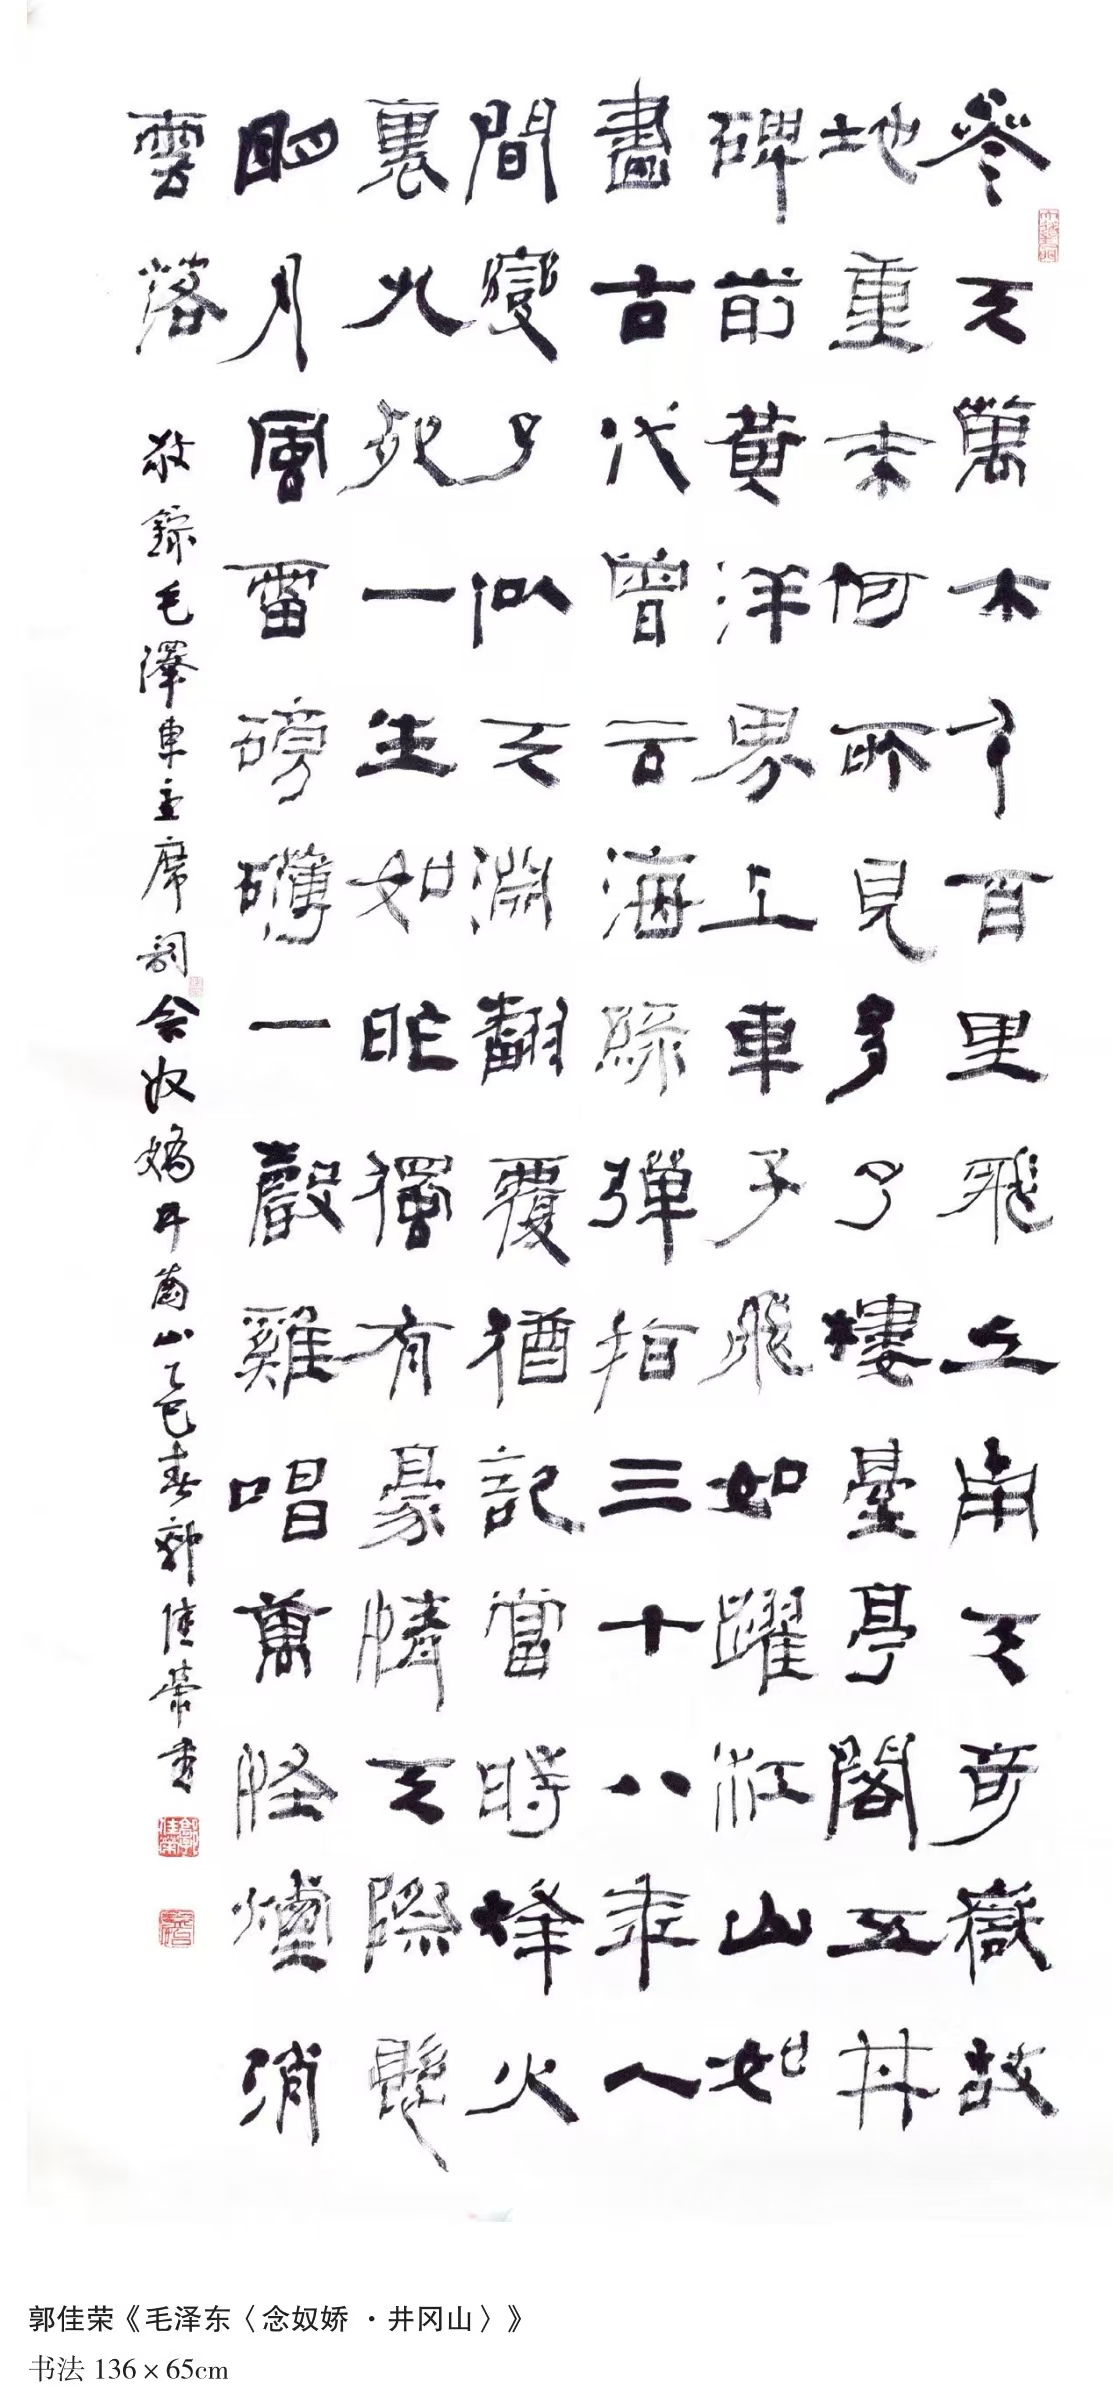 參天萬木千百里飛上南天奇嶽故
地重來何所見多了樓臺亭閣五井
碑前黃洋界上車子飛如躍江山如
畫古代曾云海綠彈指三十八年人
間變了似天淵翻覆猶記當時烽火
裏九死一生如昨獨有豪情天際懸
明月風雷磅礴一聲雞唱萬怪煙消
雲落
敬錄毛澤東主席詞念奴嬌井岡山乙巳春郭佳榮書
郭佳榮
郭佳荣《毛泽东〈念奴娇 · 井冈山〉》
书法 136×65cm